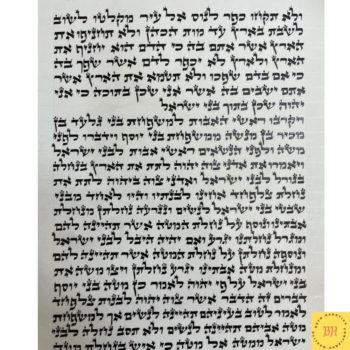 ולא תקחו כפר לנוס אל עיר מקלטו לשוב
לשבת בארץ עד מות הכהן ולא תחניפו את
הארץ אשר אתם בה כי הדם הוא יחניף את
הארץ ולארץ לא יכפר לדם אשר שפך בה
כי אם בדם שפכו ולא תטמא את הארץ אשר
אתם ישבים בה אשר אני שכן בתוכה כי אני
יהוה שכן בתוך בני ישראל
ויקרבו ראשי האבות למשפחת בני גלעד בן
מכיר בן מנשה ממשפחת בני יוסף וידברו לפני
משה ולפני הנשאים ראשי אבות לבני ישראל
ויאמרו את אדני צוה יהוה לתת את הארץ בנחלה
בגורל לבני ישראל ואדני צוה ביהוה לתת את
נחלת צלפחד אחינו לבנתיו והיו לאחד מבני
שבטי בני ישראל לנשים ונגרעה נחלתן מנחלת
אבתינו ונוסף על נחלת המטה אשר תהיינה להם
ומגרל נחלתנו יגרע ואם יהיה היבל לבני ישראל
ונוספה נחלתן על נחלת המטה אשר תהיינה להם
ומנחלת מטה אבתינו יגרע נחלתן ויצו משה את
בני ישראל על פי יהוה לאמר כן מטה בני יוסף
דברים זה הדבר אשר צוה יהוה לבנות צלפחד
לאמר לטוב בעיניהם תהיינה לנשים אך למשפחת
מטה אביהם תהיינה לנשים ולא תסב נחלה לבני
ישראל ממטה אל מטה כי איש בנחלת
BH